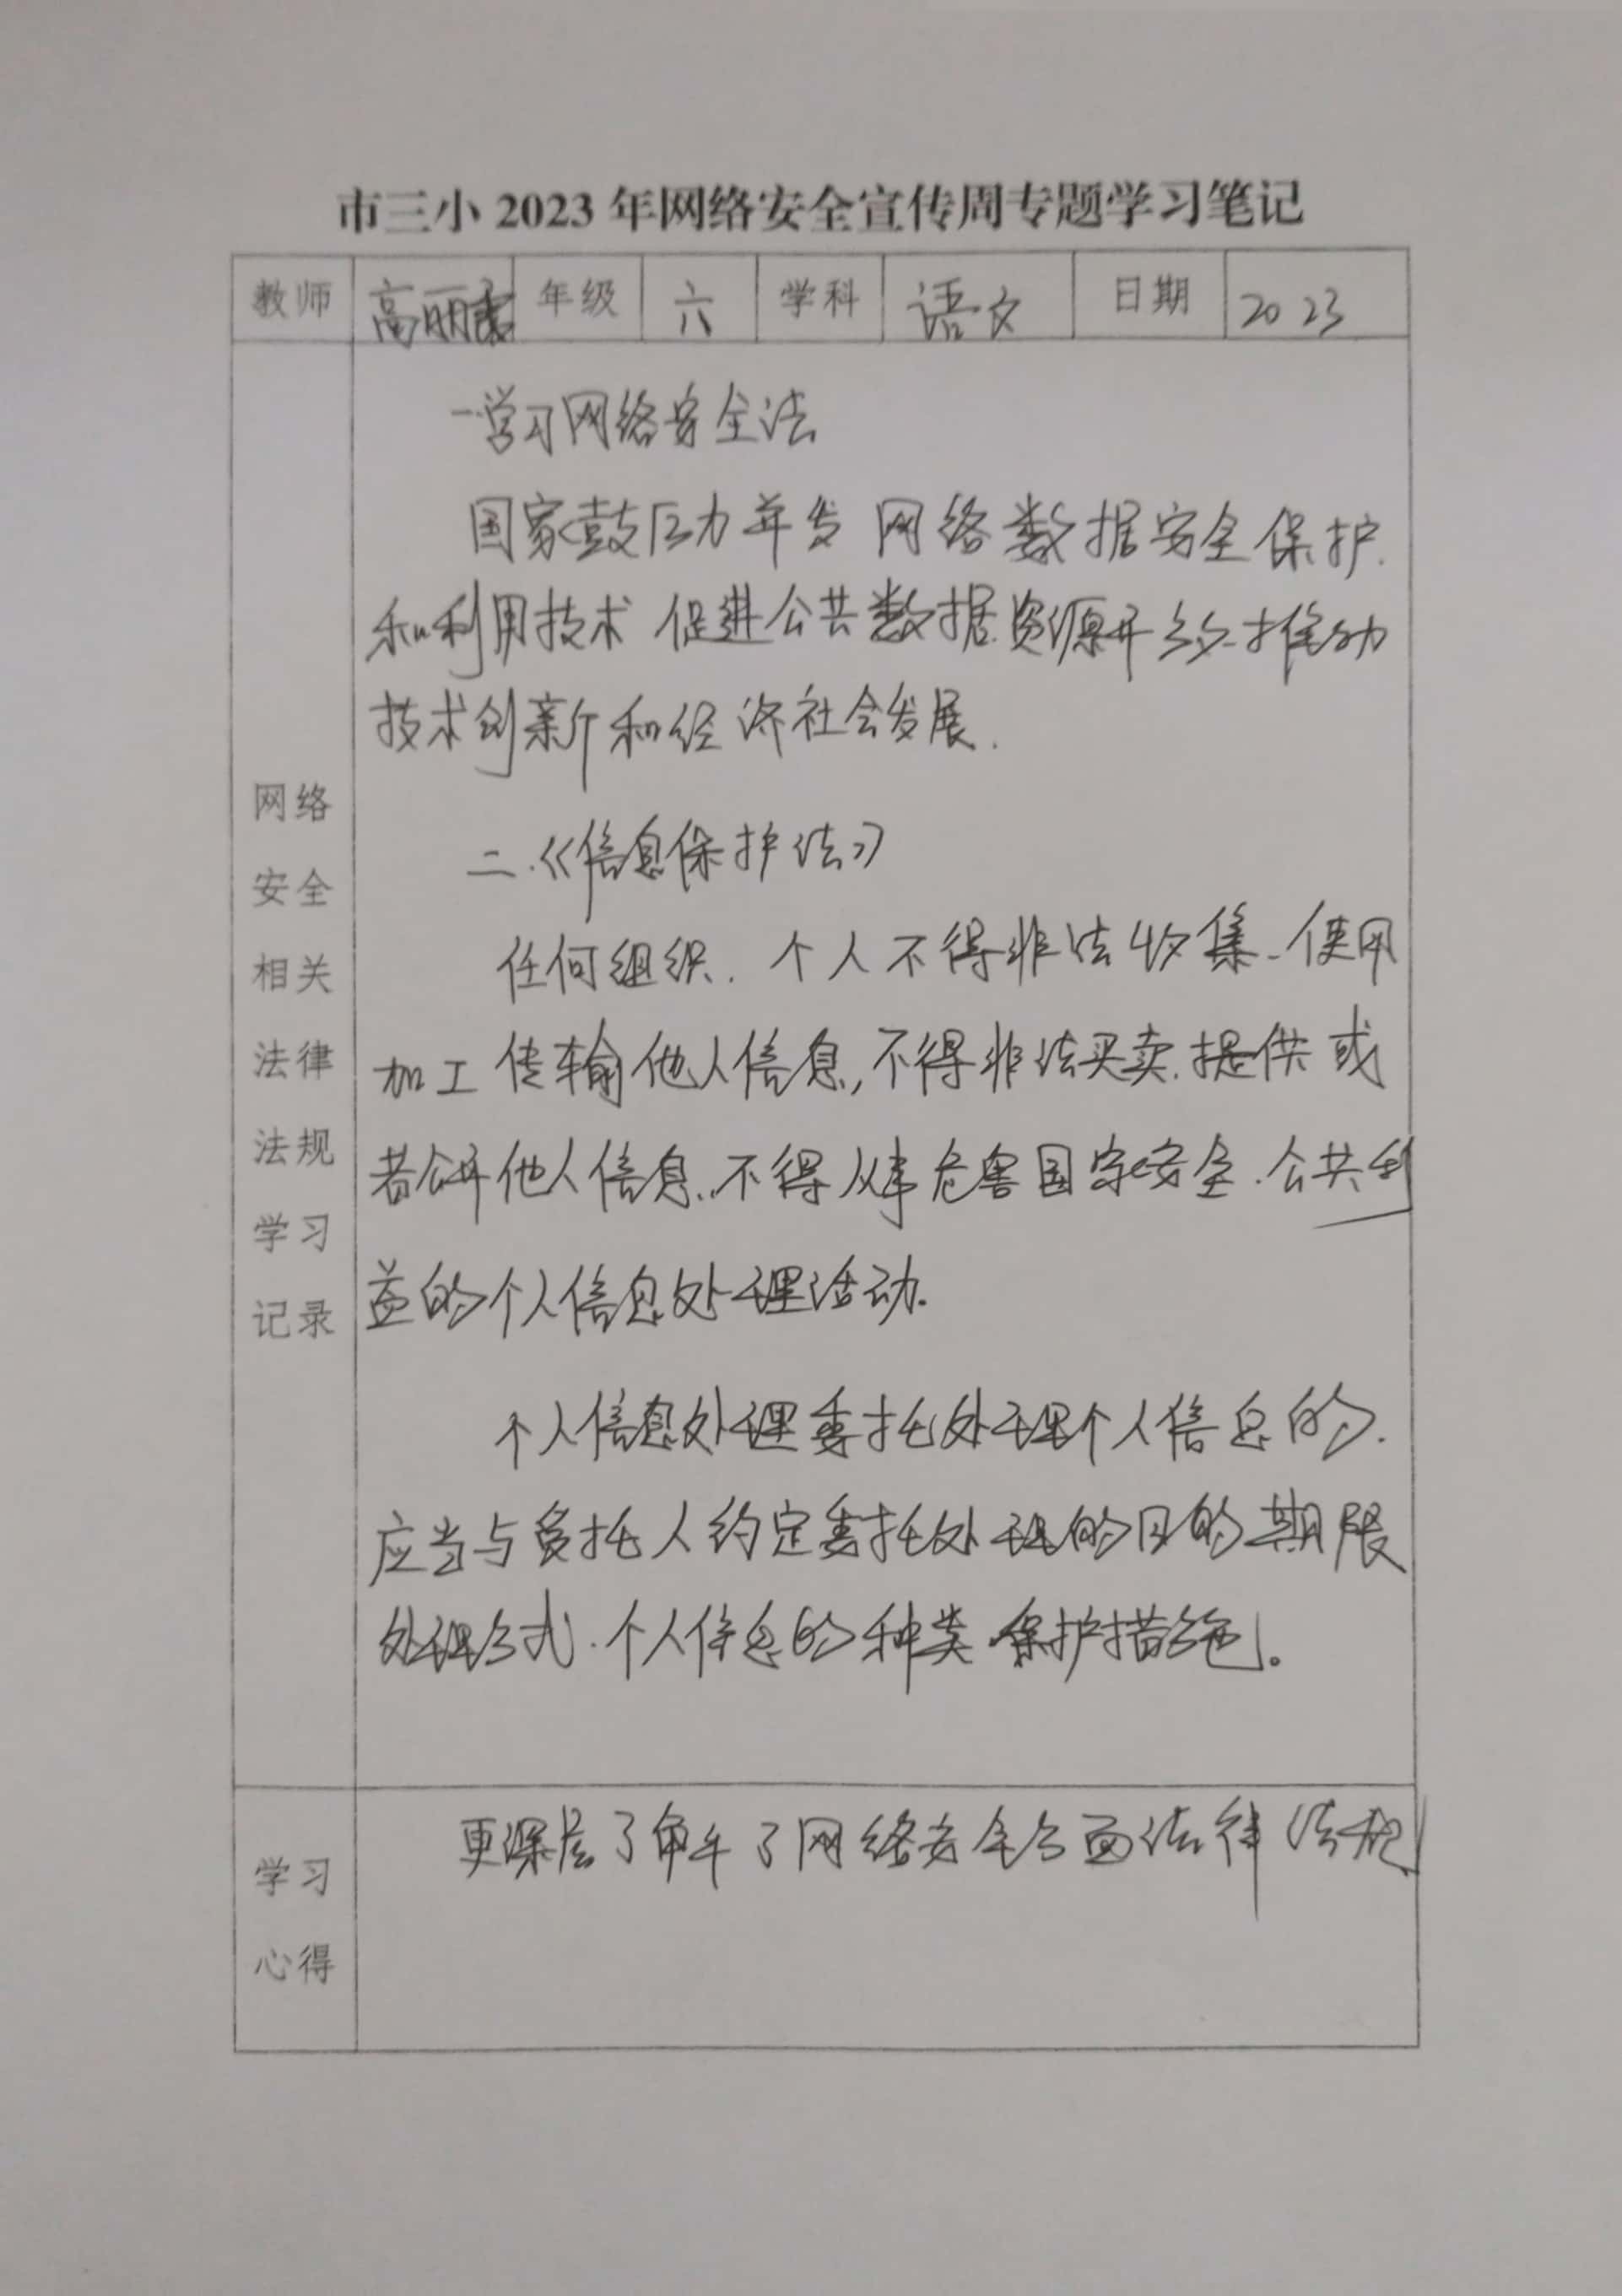 市三小 2023 年网络安全宣传周专题学习笔记
教师 高丽 年级 六 学科 语文 日期 2023
一.学习网络安全法
国家鼓励开发 网络数据安全保护.
和利用技术 促进公共数据资源开放.推动
技术创新和经济社会发展.
二.《信息保护法》
任何组织.个人不得非法收集、使用
加工 传输他人信息,不得非法买卖.提供 或
者公开他人信息.不得从事危害国家安全.公共利
益的个人信息处理活动.
个人信息处理委托处理个人信息的.
应当与受托人约定委托处理的目的期限
处理方式.个人信息的种类 保护措施。
网络
安全
相关
法律
法规
学习
记录
更深层了解了网络安全方面法律 法规
学习
心得